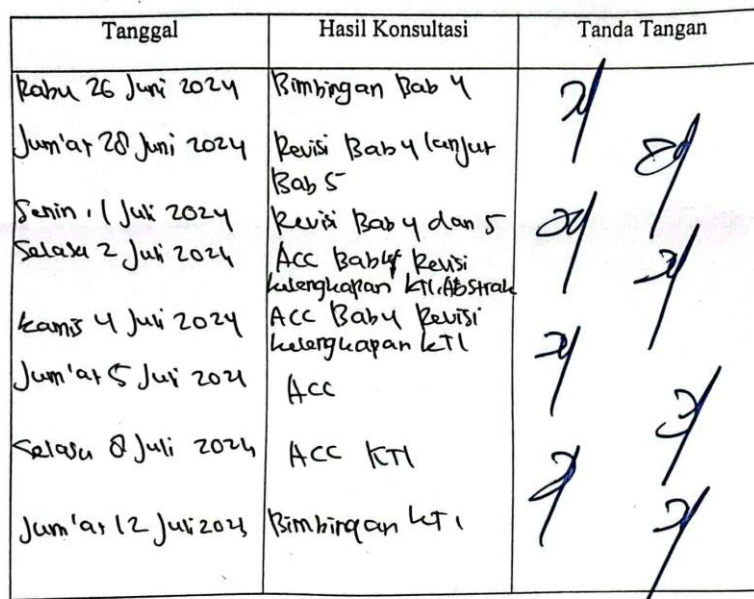 Tanggal Hasil Konsultasi Tanda Tangan
Rabu 26 Juni 2024 Bimbingan Bab 4
Jum'at 28 Juni 2024 Revisi Bab 4 lanjut
Bab 5
Senin, 1 Juli 2024 Revisi Bab 4 dan 5
Selasa 2 Juli 2024 ACC Bab 4 Revisi
kelengkapan KTI, Abstrak
Kamis 4 Juli 2024 ACC Bab 4 Revisi
kelengkapan KTI
Jum'at 5 Juli 2024 ACC
Selasa 8 Juli 2024 ACC KTI
Jum'at 12 Juli 2024 Bimbingan KTI